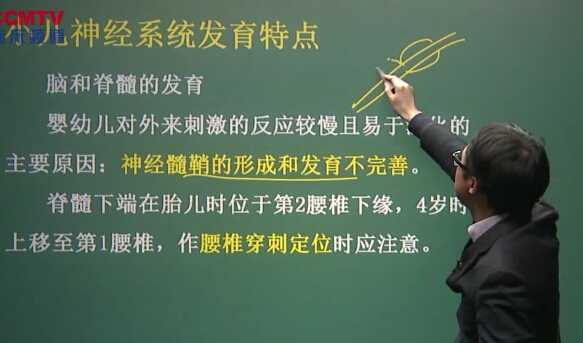 CCMTV
小儿神经系统发育特点
脑和脊髓的发育
婴幼儿对外来刺激的反应较慢且易于泛化的
主要原因：神经髓鞘的形成和发育不完善。
脊髓下端在胎儿时位于第2腰椎下缘，4岁时
上移至第1腰椎，作腰椎穿刺定位时应注意。